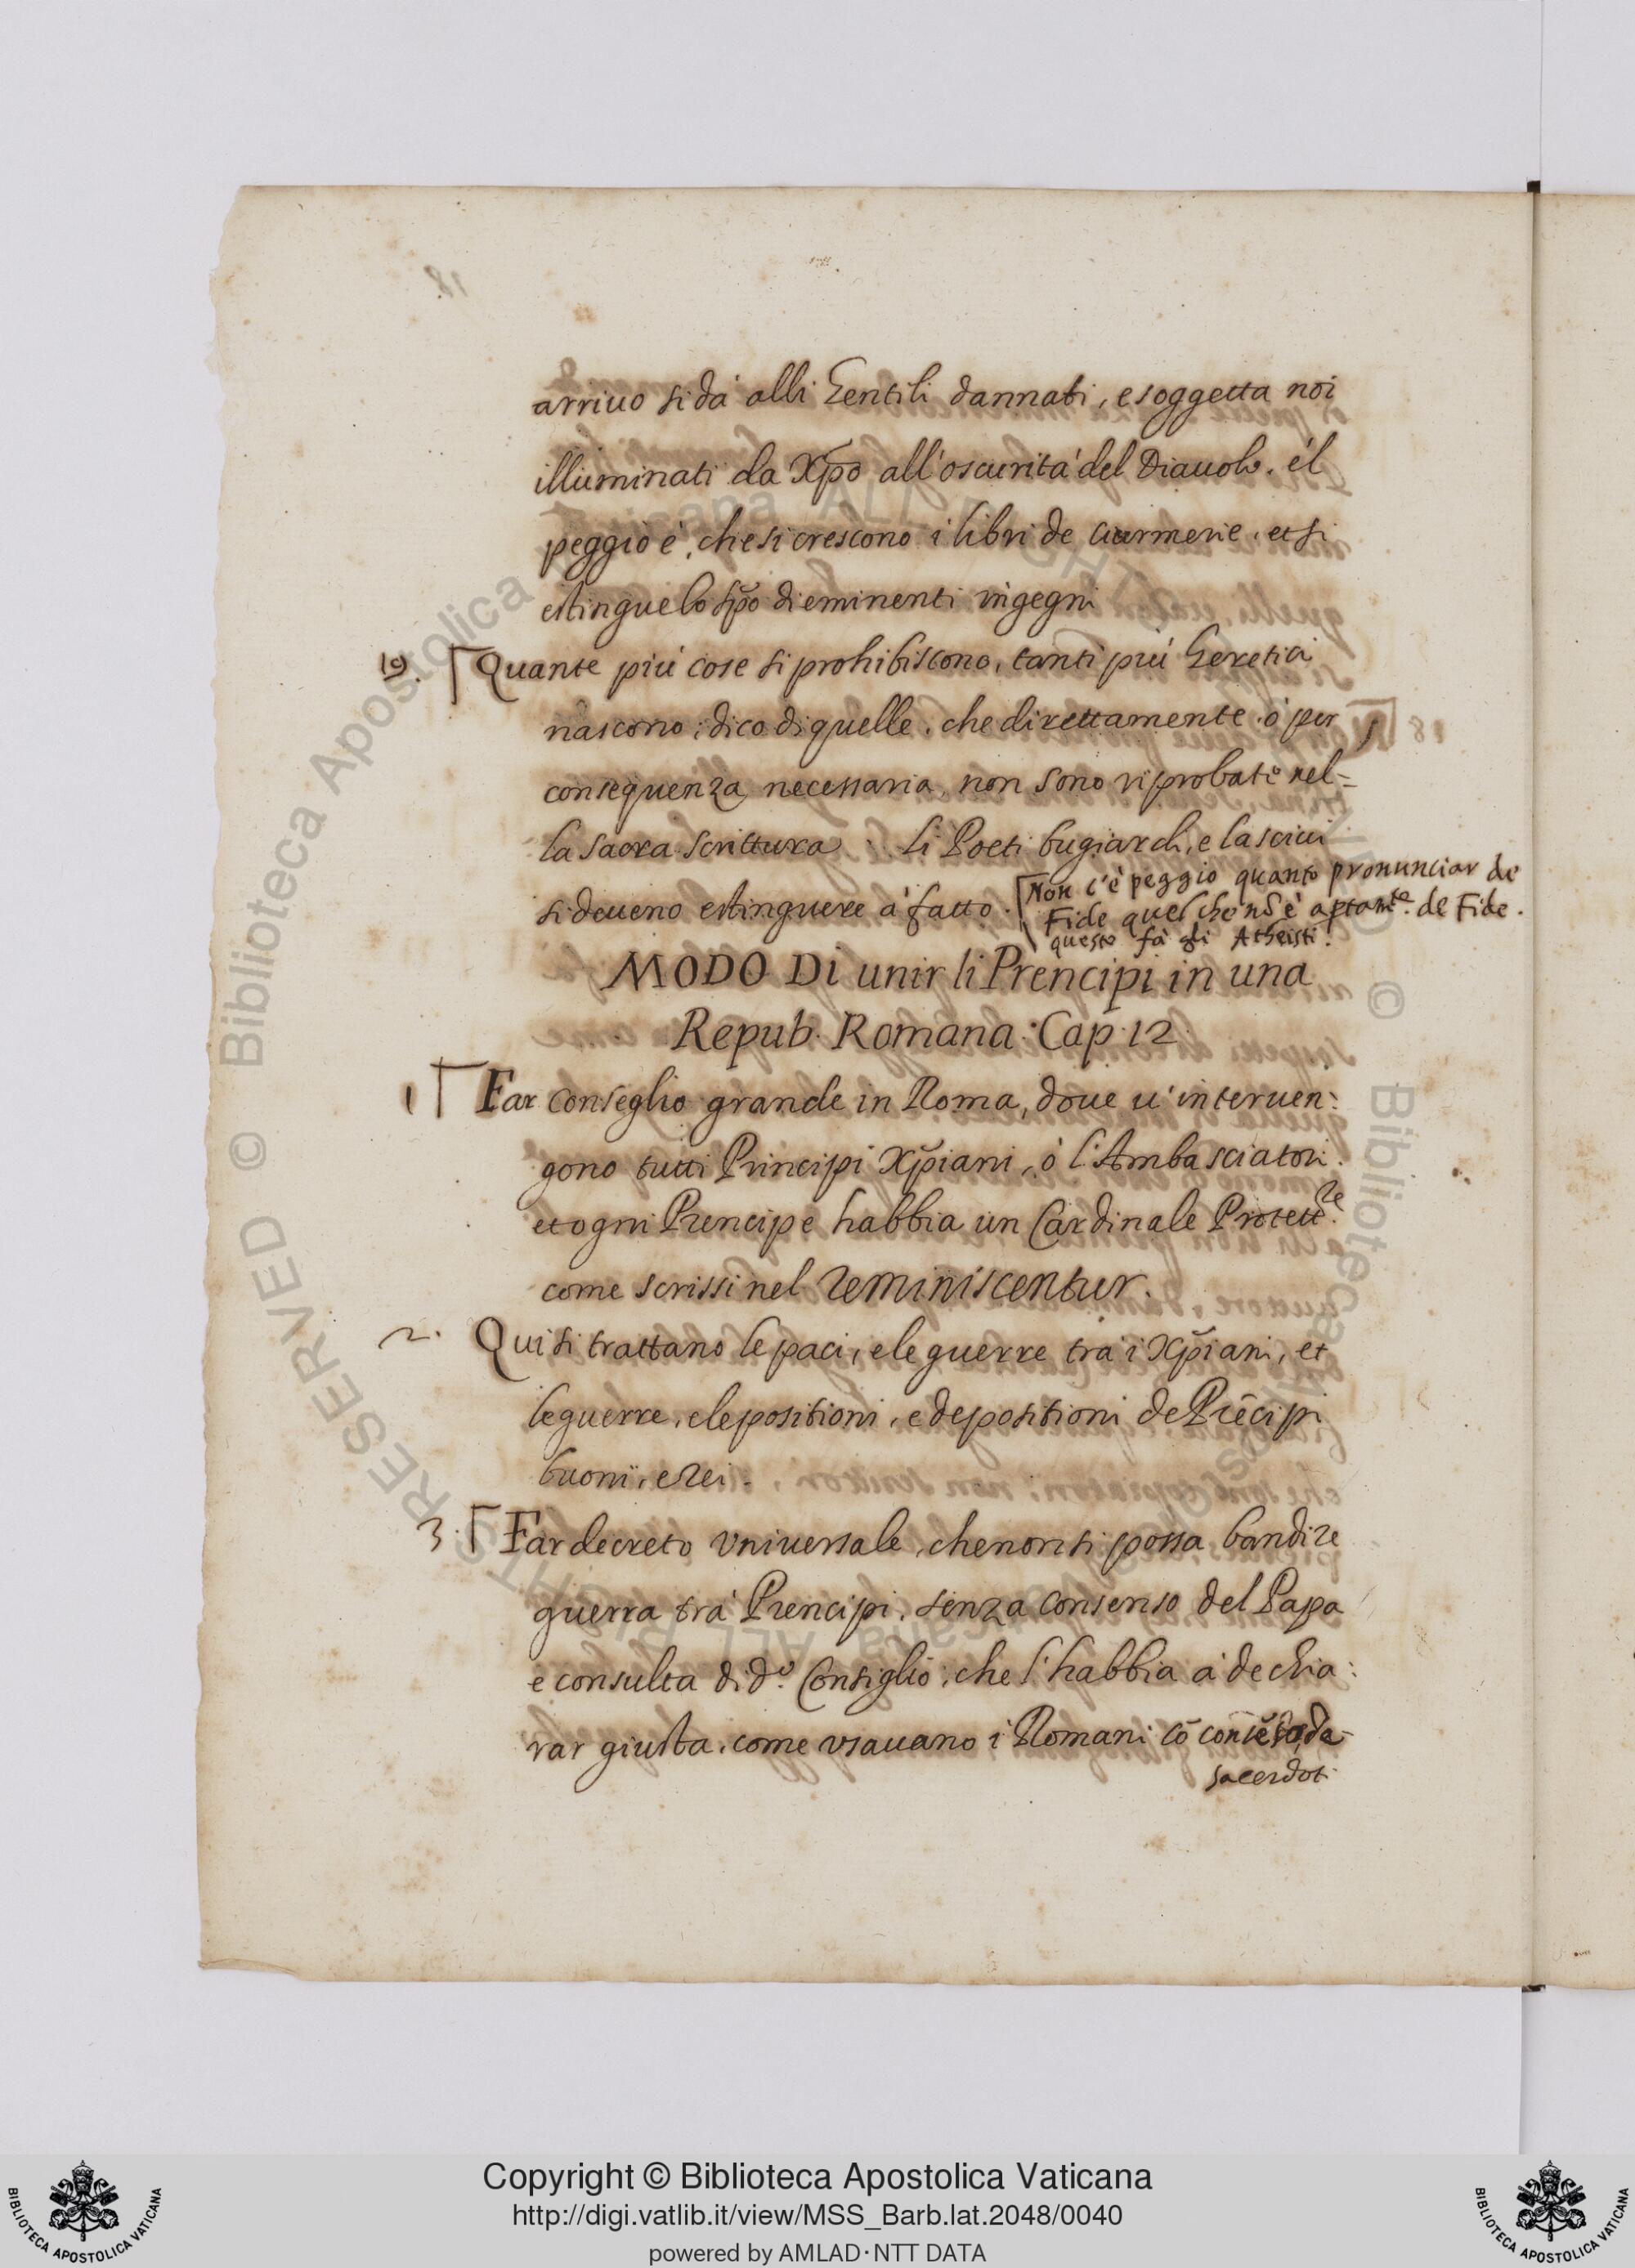 arriuo si dà alli Gentili dannati, e soggetta noi
illuminati da Xp̄o all'oscurità del Diauolo. e'l
peggio è, che si crescono i libri de ciurmerie, et si
estingue lo sp̄o di eminenti ingegni
19. Quante più cose si prohibiscono, tanti più Heretici
nascono; dico di quelle, che direttamente, ò per
consequenza necessaria, non sono riprobate nel=
la sacra scrittura. Li Poeti bugiardi, e lasciui
si deueno estinguere à fatto.
Non c'è peggio quanto pronunciar de
Fide quel che nō è aptamte. de Fide.
questo fà gli Atheisti.
MODO Di unir li Prencipi in una
Repub. Romana. Cap. 12
1 Far conseglio grande in Roma, doue u'interuen:
gono tutti Principi Xp̄iani, ò l'Ambasciatori.
et ogni Prencipe habbia un Cardinale Protettre.
come scrissi nel reminiscentur.
2. Qui si trattano le paci, e le guerre trà i Xp̄iani, et
le guerre, e le positioni, e depositioni de Prēcipi
buoni, e rei.
3. Far decreto vniuersale, che non si possa bandire
guerra trà Prencipi, senza consenso del Papa
e consulta di do. Consiglio, che l'habbia à dechia:
rar giusta, come vsauano i Romani cō de
sacerdoti
18
Copyright © Biblioteca Apostolica Vaticana
http://digi.vatlib.it/view/MSS_Barb.lat.2048/0040
powered by AMLAD·NTT DATA
BIBLIOTECA APOSTOLICA VATICANA
BIBLIOTECA APOSTOLICA VATICANA
© Biblioteca Apostolica Vaticana ALL RIGHTS RESERVED © Biblioteca Apostolica Vaticana ALL RIGHTS RESERVED